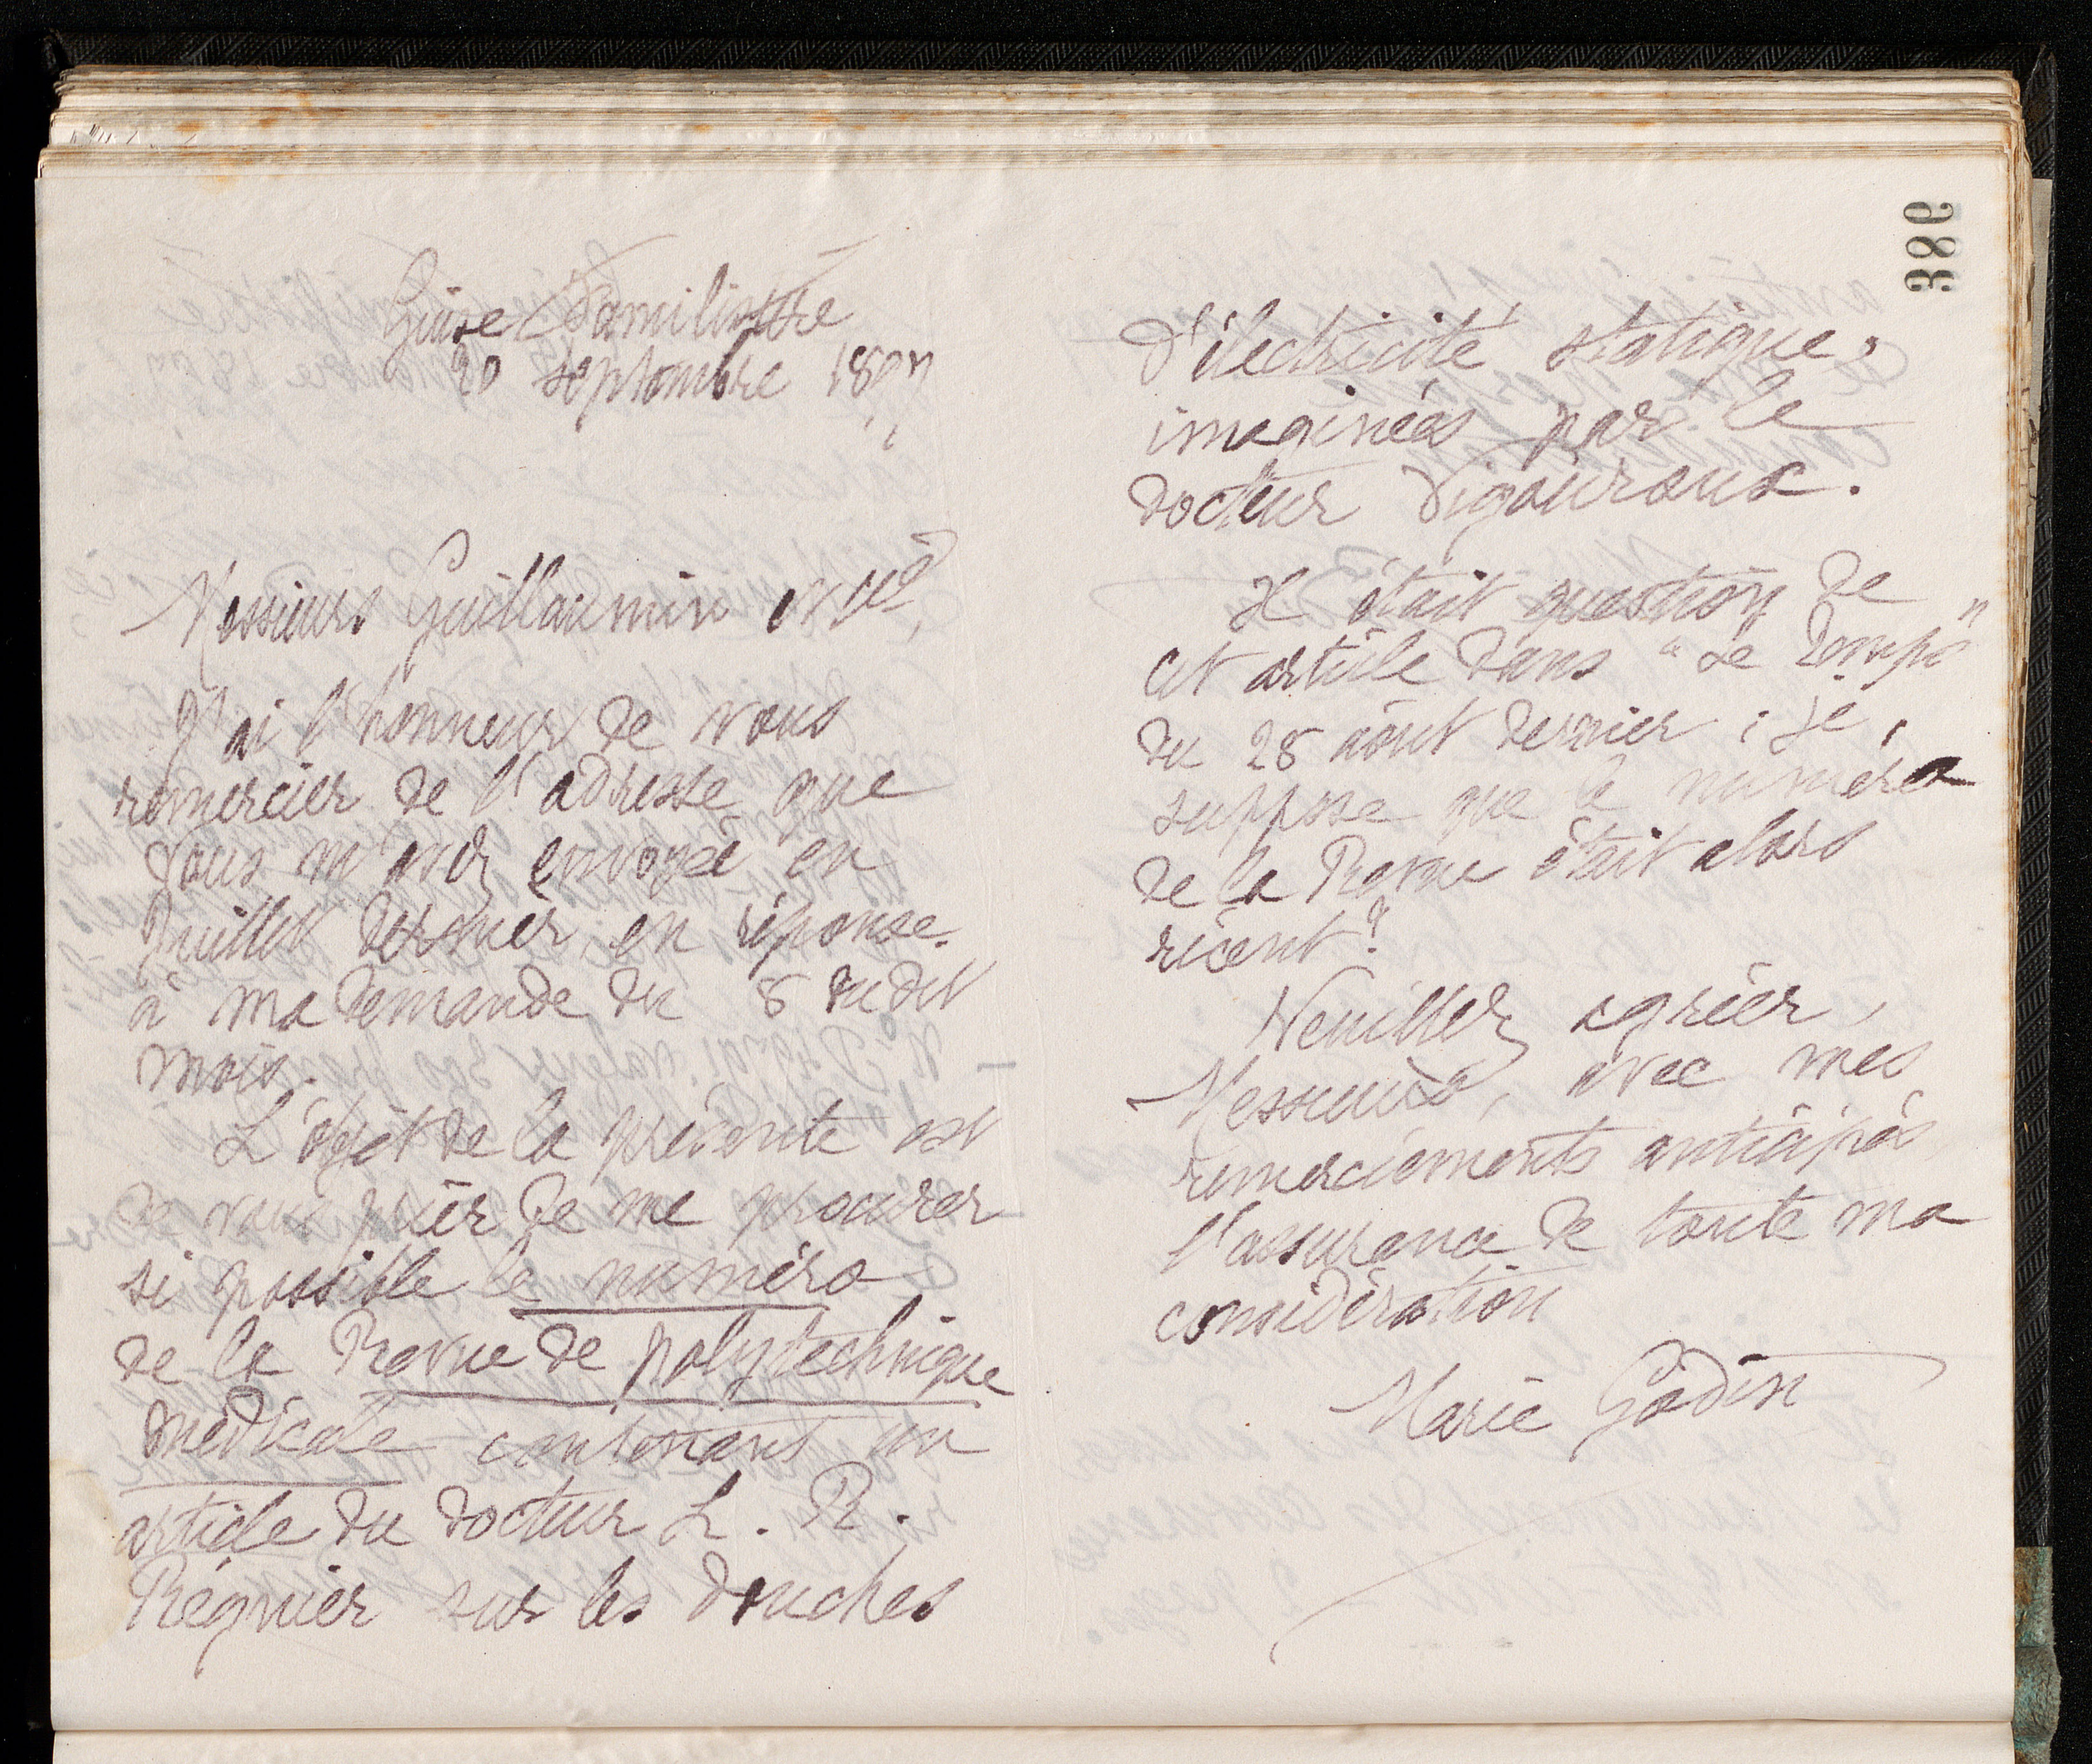 386
Guise Familistère
20 septembre 1897
Messieurs Guillaumin et Cie,
J'ai l'honneur de vous
remercier de l'adresse que
vous m'avez envoyée en
Juillet dernier, en réponse
à ma demande du 8 du dit
mois.
L'objet de la présente est
de vous prier de me procurer
si possible le numéro
de la Revue de polytechnique
médicale contenant un
article du docteur L. R.
Régnier sur les douches
d'électricité statique,
imaginées par le
docteur Vigouroux.
Il était question de
cet article dans "Le Temps"
du 28 août dernier ; je
suppose que le numéro
de la Revue était alors
récent ?
Veuillez agréer,
Messieurs, avec mes
remerciements anticipés,
l'assurance de toute ma
considération
Marie Godin